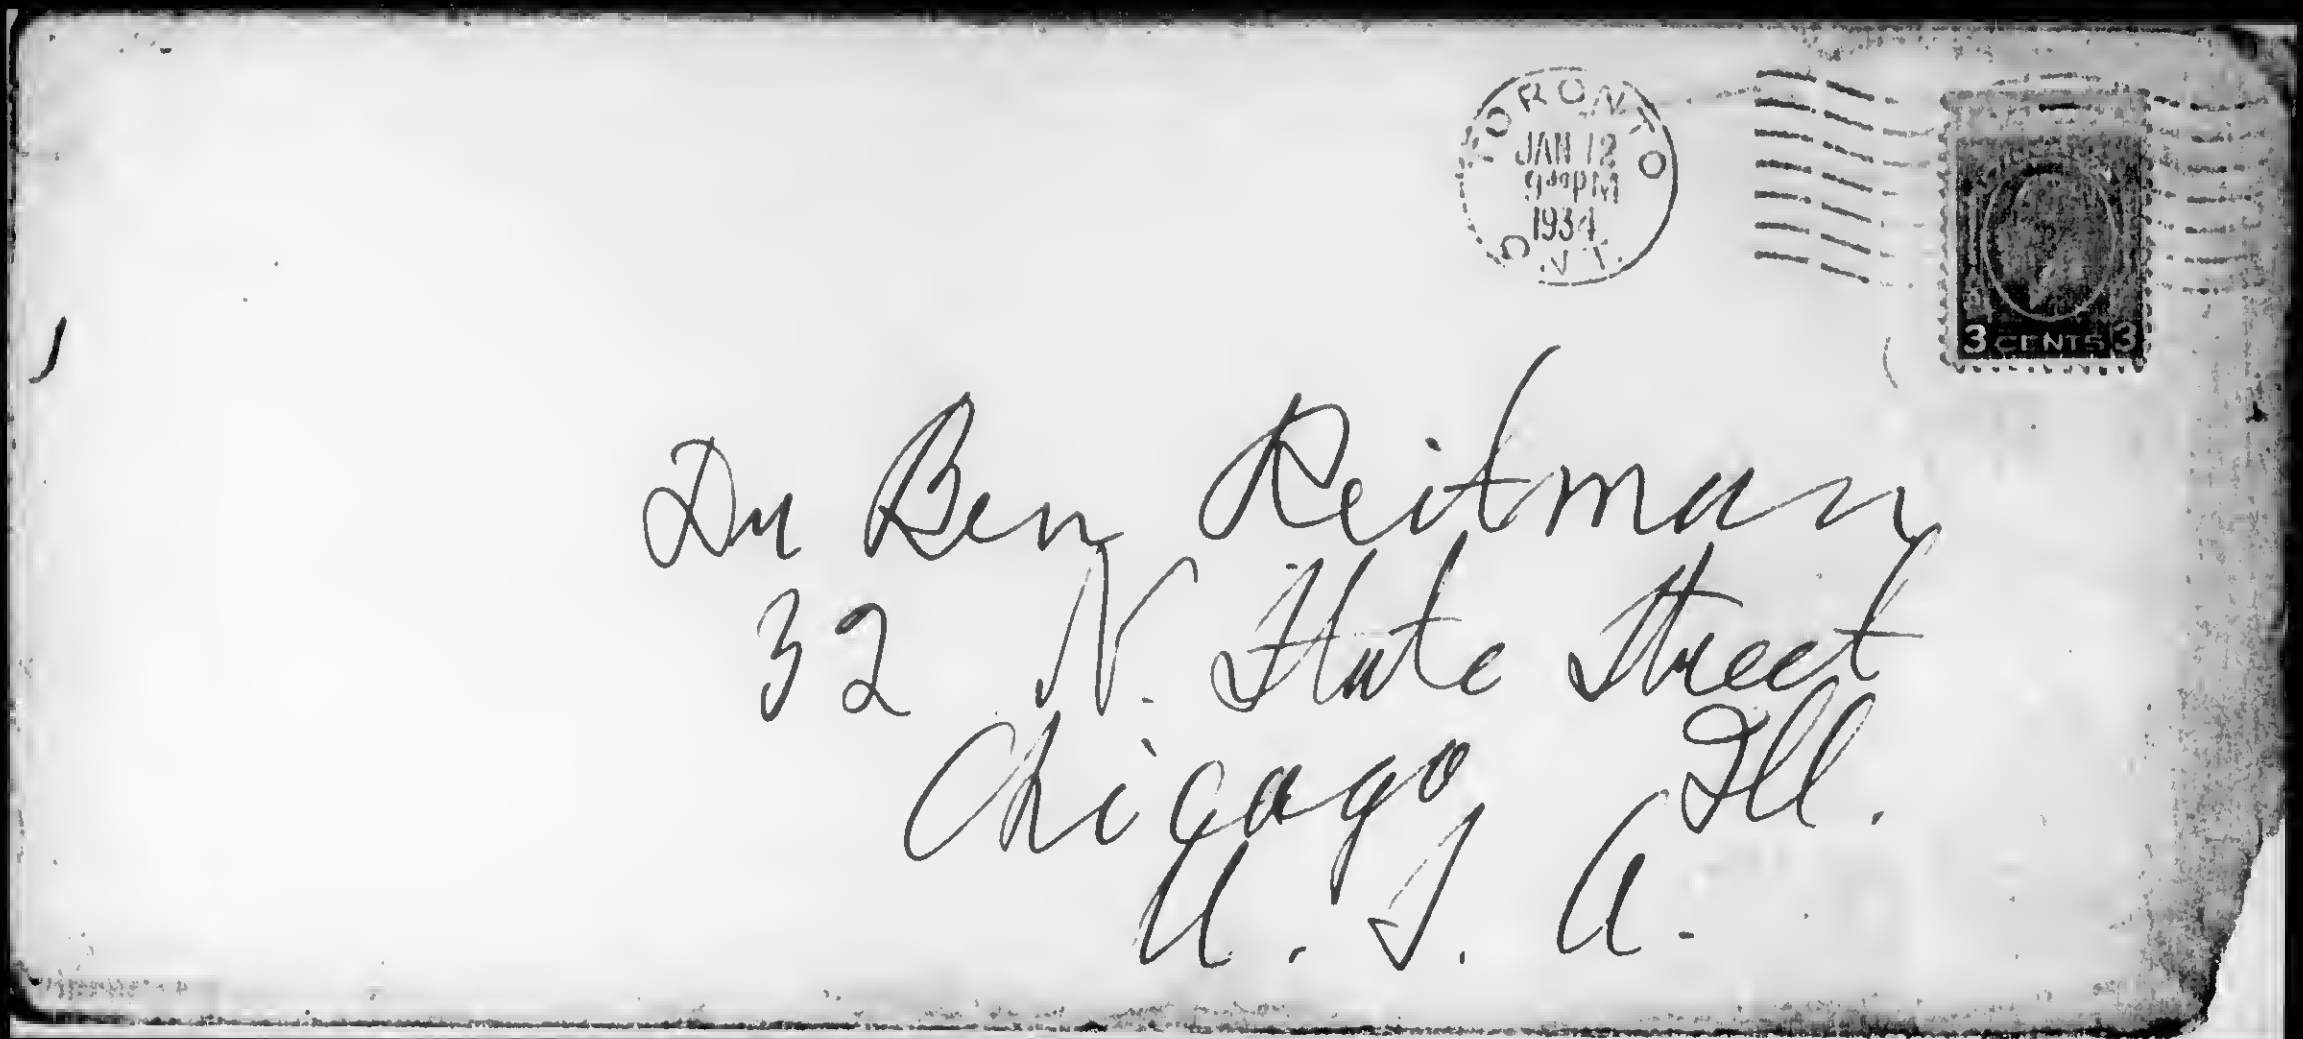 TORONTO
JAN 12
9 PM
1934
ONT.
3 CENTS 3
Dr Ben Reitman
32 N. State Street
Chicago Ill.
U. S. A.